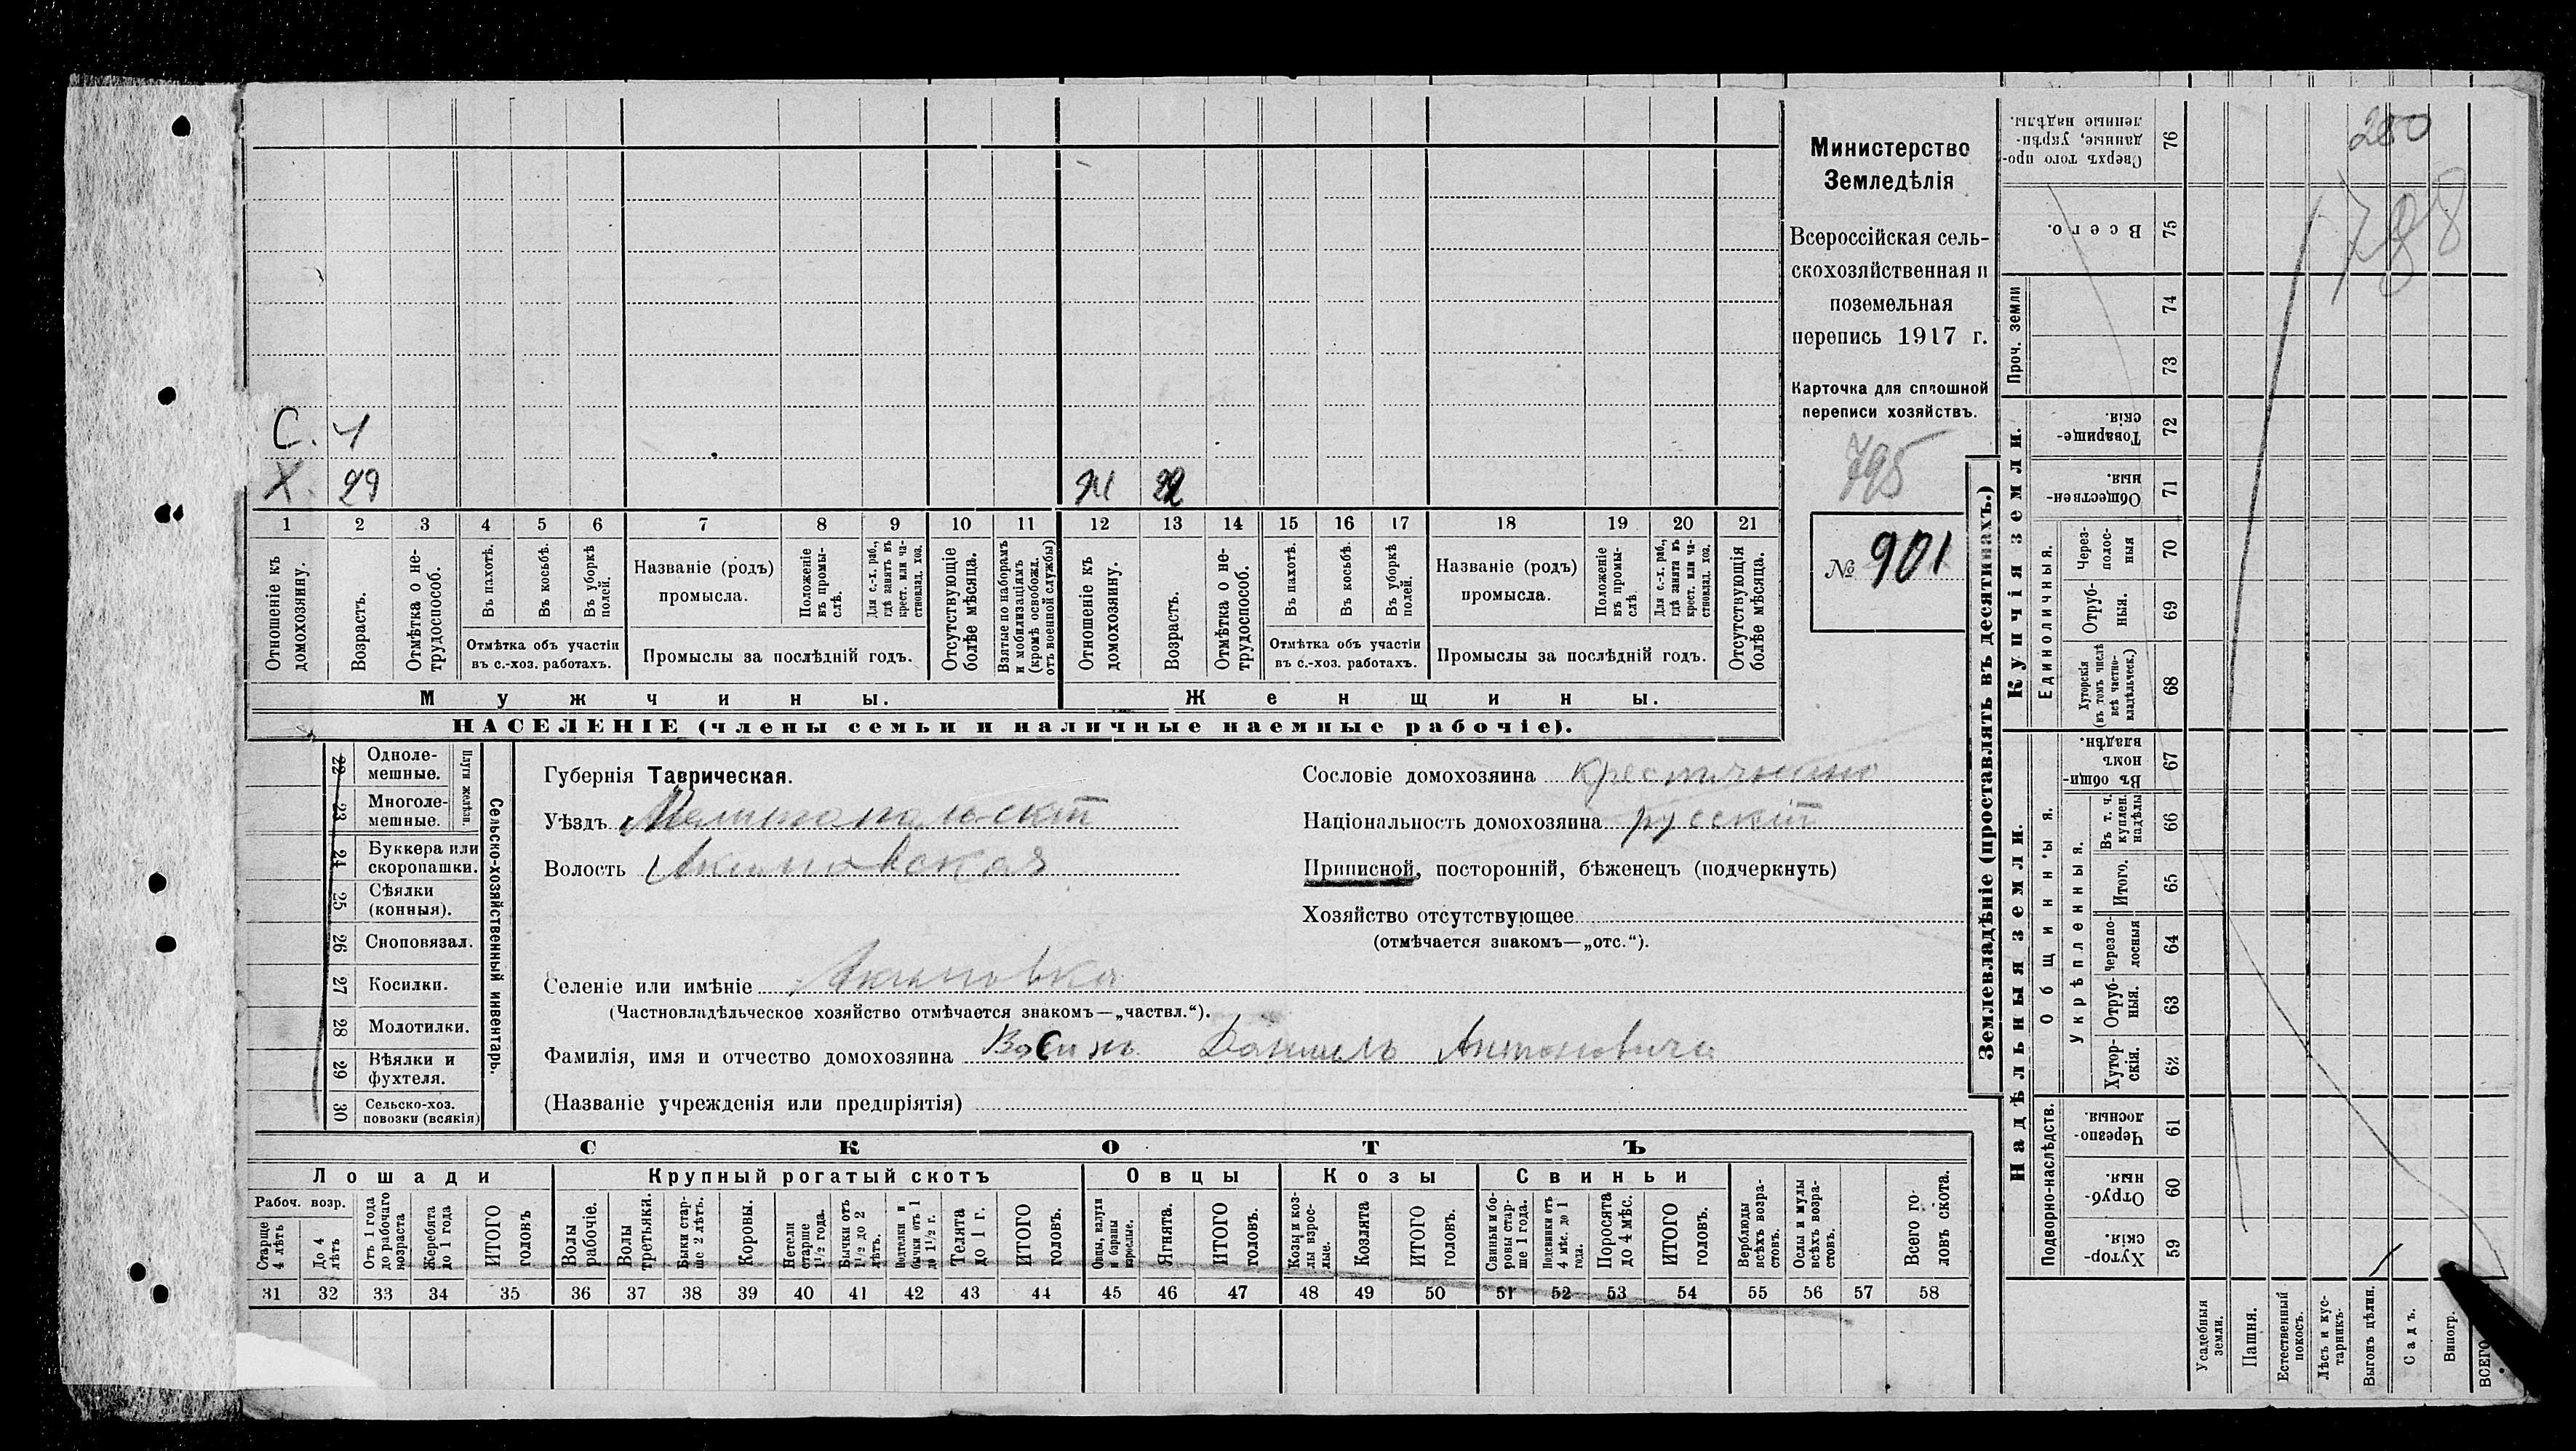 С. 4
Х. 29 Ж 32
1 2 3 4 5 6 7 8 9 10 11 12 13 14 15 16 17 18 19 20 21
Отношеніе къ домохозяину.
Возрастъ.
Отмѣтка о не-
трудоспособ.
Въ пахотѣ.
Въ косьбѣ.
Въ уборкѣ
полей.
Отмѣтка объ участіи
въ с.-хоз. работахъ.
Названіе (родъ)
промысла.
Положеніе
въ промы-
слѣ.
Для с.-х. раб.,
гдѣ занятъ въ
крест. или ча-
стновлад. хоз.
Промыслы за послѣдній годъ.
Отсутствующіе
болѣе мѣсяца.
Взятые по наборамъ
и мобилизаціямъ
(кромѣ освобожд.
отъ военной службы)
Отношеніе къ
домохозяину.
Возрастъ.
Отмѣтка о не-
трудоспособ.
Въ пахотѣ.
Въ косьбѣ.
Въ уборкѣ
полей.
Отмѣтка объ участіи
въ с.-хоз. работахъ.
Названіе (родъ)
промысла.
Положеніе
въ промы-
слѣ.
Для с.-х. раб.,
гдѣ занята въ
крест. или ча-
стновлад. хоз.
Промыслы за послѣдній годъ.
Отсутствующія
болѣе мѣсяца.
Мужчины.
Женщины.
НАСЕЛЕНІЕ (члены семьи и наличные наемные рабочіе).
Министерство
Земледѣлія
Всероссійская сель-
скохозяйственная и
поземельная
перепись 1917 г.
Карточка для сплошной
переписи хозяйствъ.
795
№ 901
22 Одноле-
мешные.
23 Многоле-
мешные.
Плуги желѣзн.
24 Буккера или
скоропашки.
25 Сѣялки
(конныя).
26 Сноповязал.
27 Косилки.
28 Молотилки.
29 Вѣялки и
фухтеля.
30 Сельско-хоз.
повозки (всякія)
Сельско-хозяйственный инвентарь.
Губернія Таврическая.
Уѣздъ Мелитопольскій
Волость Акимовская
Сословіе домохозяина крестьянинъ
Національность домохозяина русскій
Приписной, посторонній, бѣженецъ (подчеркнуть)
Хозяйство отсутствующее
(отмѣчается знакомъ—„отс.“).
Селеніе или имѣніе Акимовка
(Частновладѣльческое хозяйство отмѣчается знакомъ—„частвл.“).
Фамилія, имя и отчество домохозяина Даніилъ Антоновичъ
(Названіе учрежденія или предпріятія)
СКОТЪ
Лошади
Крупный рогатый скотъ
Овцы
Козы
Свиньи
Рабоч. возр.
Старше
4 лѣтъ
До 4
лѣтъ
Отъ 1 года
до рабочаго
возраста
Жеребята
до 1 года
ИТОГО
головъ
Волы
рабочіе.
Волы
третьяки.
Быки стар-
ше 2 лѣтъ.
Коровы.
Нетели
старше
1½ года.
Бычки отъ
1½ до 2
лѣтъ.
Подтелки и
бычки отъ 1
до 1½ г.
Телята
до 1 г.
ИТОГО
головъ.
Овцы, валухи
и бараны
взрослые.
Ягнята.
ИТОГО
головъ.
Козы и коз-
лы взрос-
лые.
Козлята
ИТОГО
головъ.
Свиньи и бо-
ровы стар-
ше 1 года.
Подсвинки отъ
4 мѣс. до 1
года.
Поросята
до 4 мѣс.
ИТОГО
головъ.
Верблюды
всѣхъ возра-
стовъ.
Ослы и мулы
всѣхъ возра-
стовъ.
Всего го-
ловъ скота.
31 32 33 34 35 36 37 38 39 40 41 42 43 44 45 46 47 48 49 50 51 52 53 54 55 56 57 58
Землевладѣніе (проставлять въ десятинахъ.)
Купчія земли.
Надѣльныя земли.
Проч. земли
Единоличныя.
Общинныя.
Укрѣпленныя.
Подворно-наслѣдств.
Сверхъ того про-
данные, укрѣп-
ленные надѣлы. 76
Всего. 75
74
73
Товарище-
скія. 72
Обществен-
ныя. 71
Через-
полос-
ныя 70
Отруб-
ныя. 69
Хуторскія
(въ томъ числѣ
всѣ частно-
владѣльческ.) 68
Въ общи-
номъ
владѣн. 67
Въ т. ч.
куплен.
надѣлы 66
Итого. 65
Черезпо-
лосныя 64
Отруб-
ныя. 63
Хутор-
скія. 62
Черезпо-
лосныя. 61
Отруб-
ныя. 60
Хутор-
скія. 59
Усадебныя
земли.
Пашня.
Естественный
покосъ.
Лѣсъ и кус-
тарникъ.
Выгонъ цѣлин.
Садъ.
Виногр.
ВСЕГО
280
1788